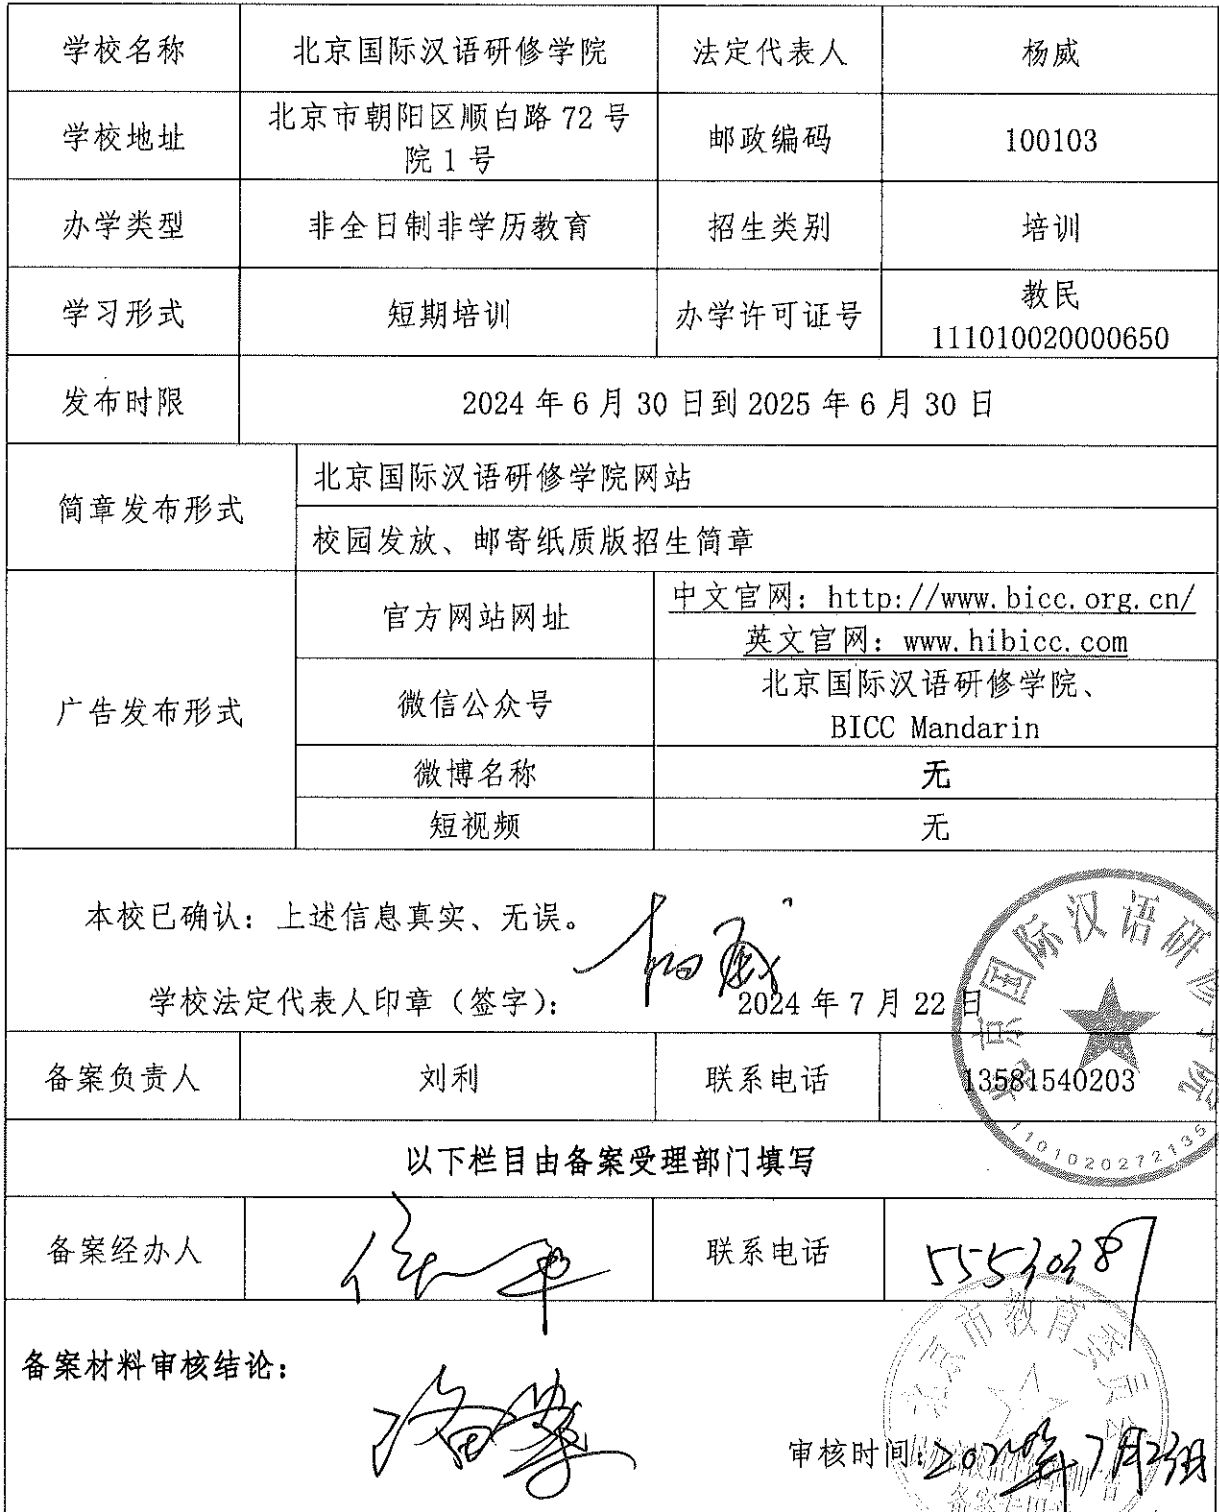 学校名称 北京国际汉语研修学院 法定代表人 杨威
学校地址 北京市朝阳区顺白路 72 号 邮政编码 100103
院 1 号
办学类型 非全日制非学历教育 招生类别 培训
学习形式 短期培训 办学许可证号 教民
111010020000650
发布时限 2024 年 6 月 30 日到 2025 年 6 月 30 日
简章发布形式 北京国际汉语研修学院网站
校园发放、邮寄纸质版招生简章
广告发布形式 官方网站网址 中文官网：http://www.bicc.org.cn/
英文官网：www.hibicc.com
微信公众号 北京国际汉语研修学院、
BICC Mandarin
微博名称 无
短视频 无
本校已确认：上述信息真实、无误。
杨威
学校法定代表人印章（签字）： 2024 年 7 月 22 日
北京国际汉语研修学院
1101020272135
备案负责人 刘利 联系电话 13581540203
以下栏目由备案受理部门填写
备案经办人 联系电话 55530387
备案材料审核结论：
北京市教育委员会
审核时间：2024年7月23日